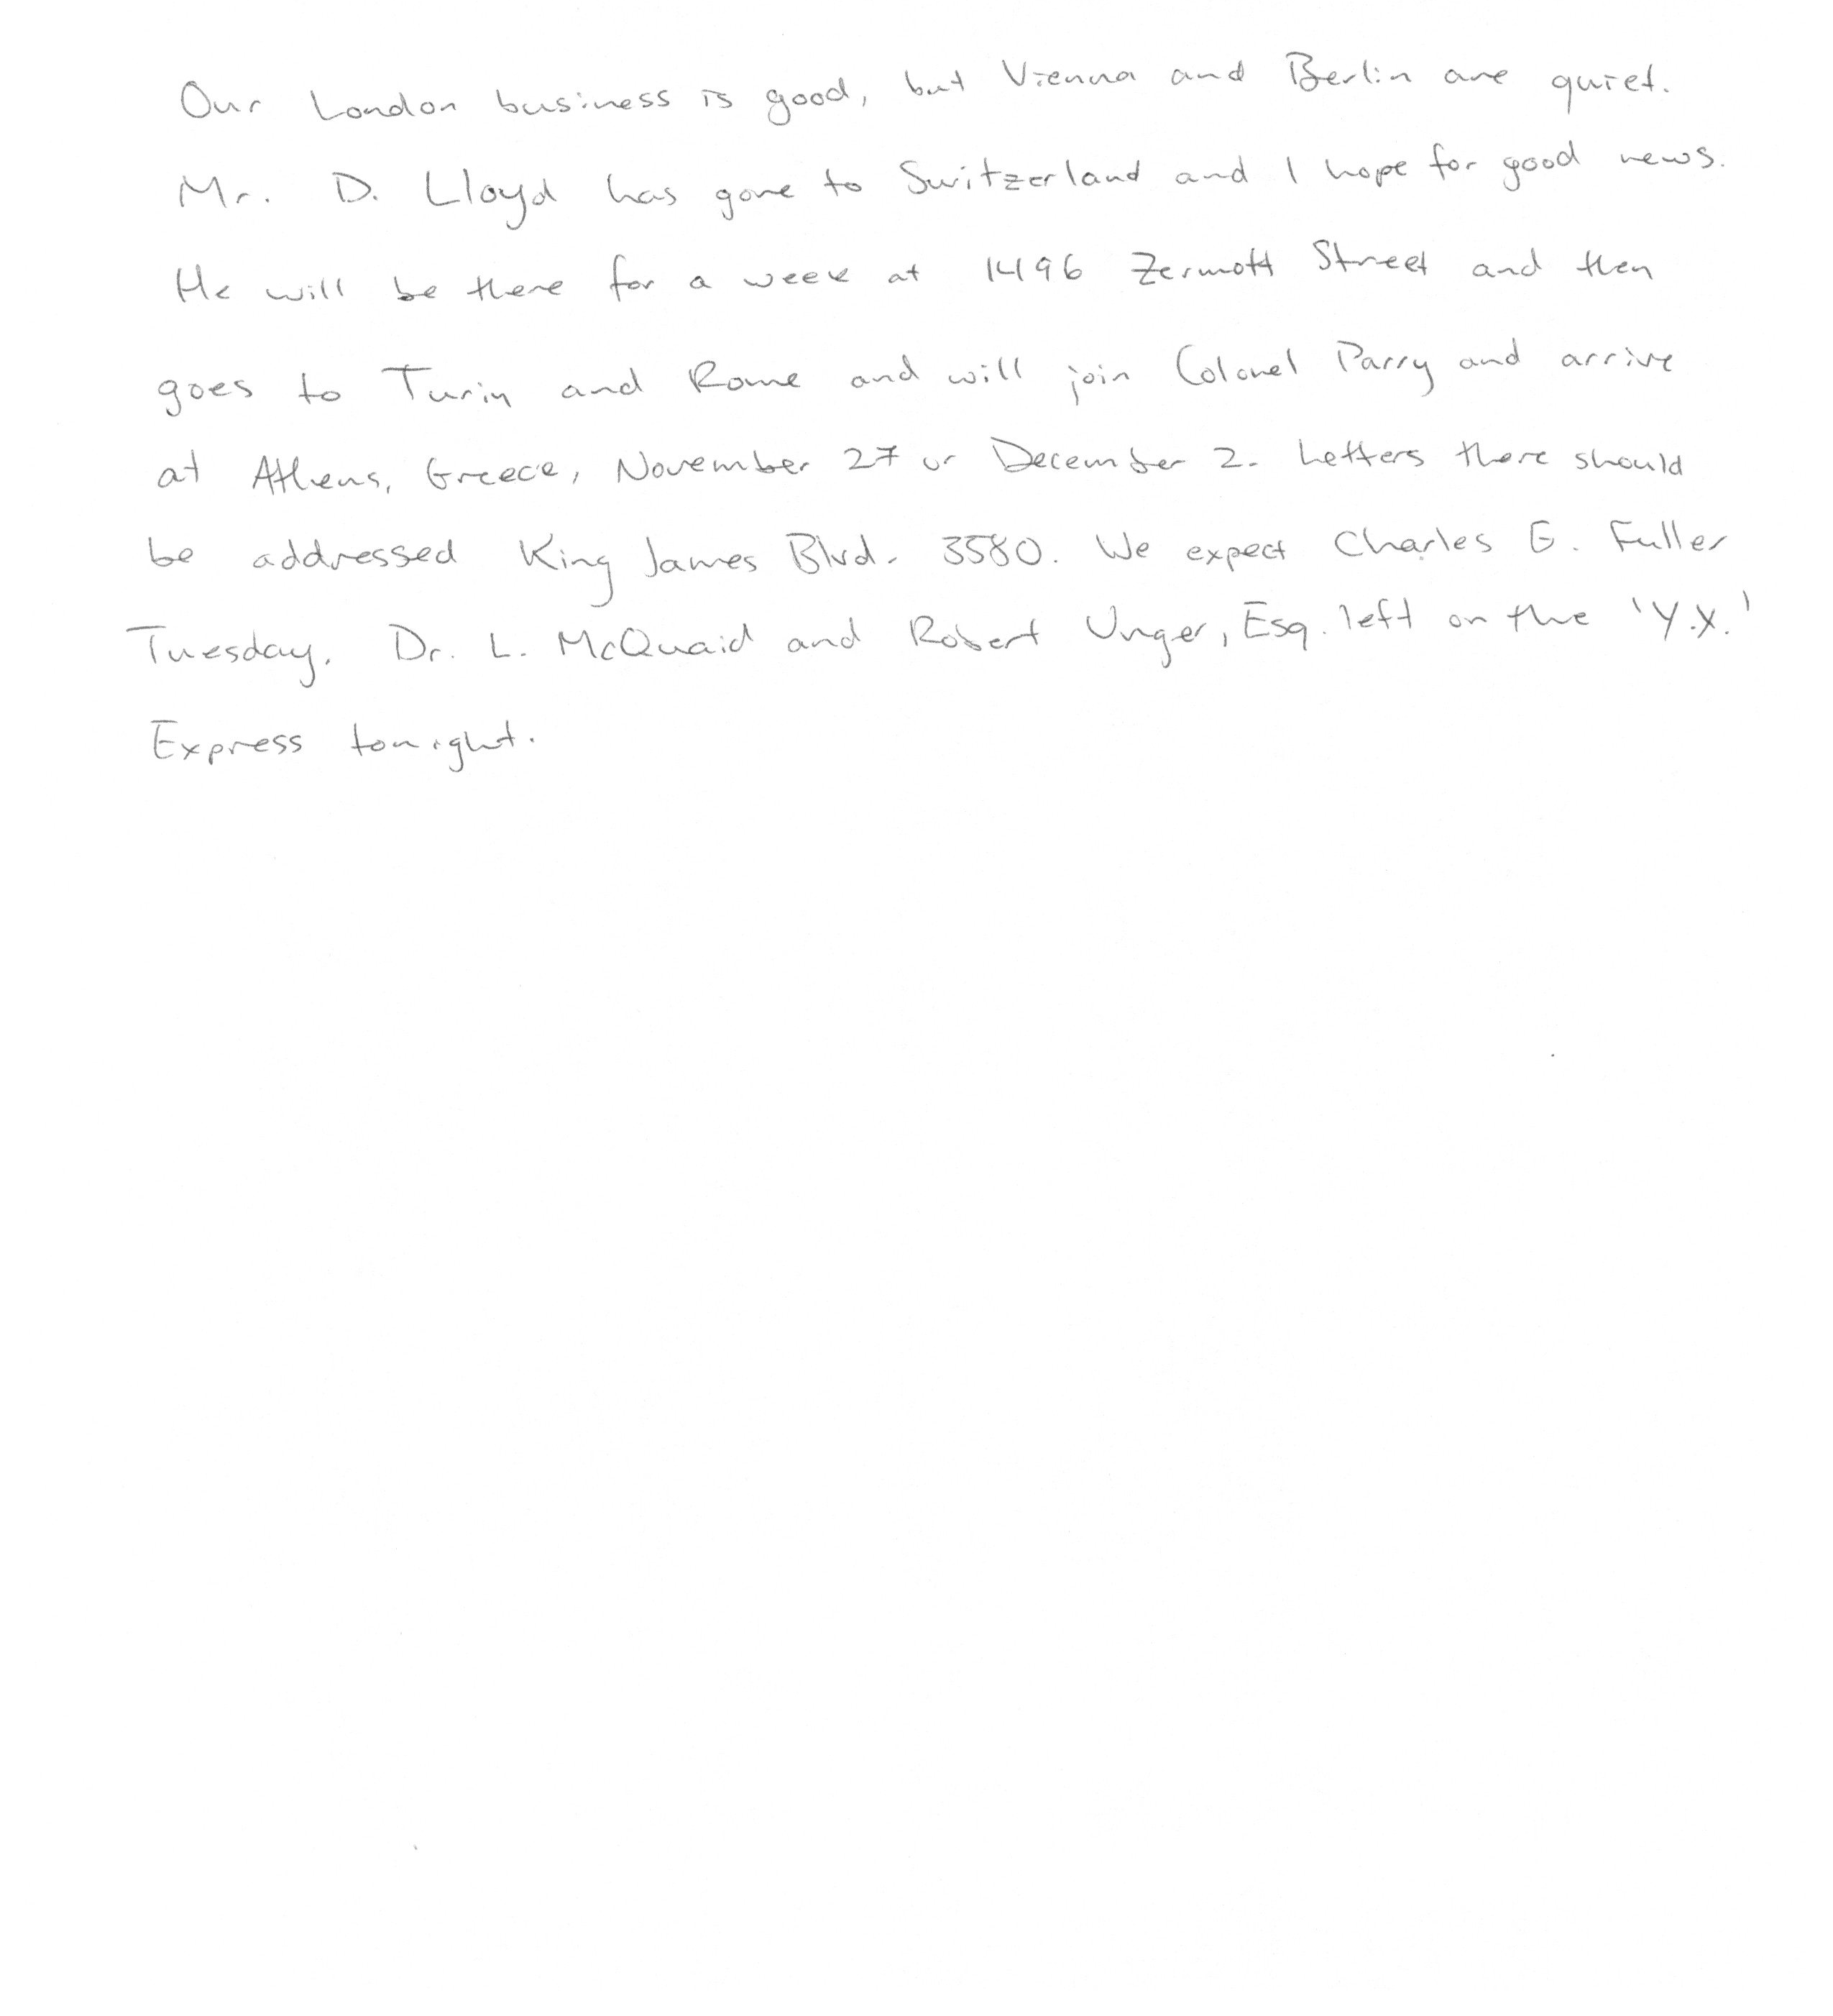 Our London business is good, but Vienna and Berlin are quiet.
Mr. D. Lloyd has gone to Switzerland and I hope for good news.
He will be there for a week at 1496 Zermott Street and then
goes to Turin and Rome and will join Colonel Parry and arrive
at Athens, Greece, November 27 or December 2. Letters there should
be addressed King James Blvd. 3580. We expect Charles G. Fuller
Tuesday. Dr. L. McQuaid and Robert Unger, Esq. left on the 'Y.X.'
Express tonight.